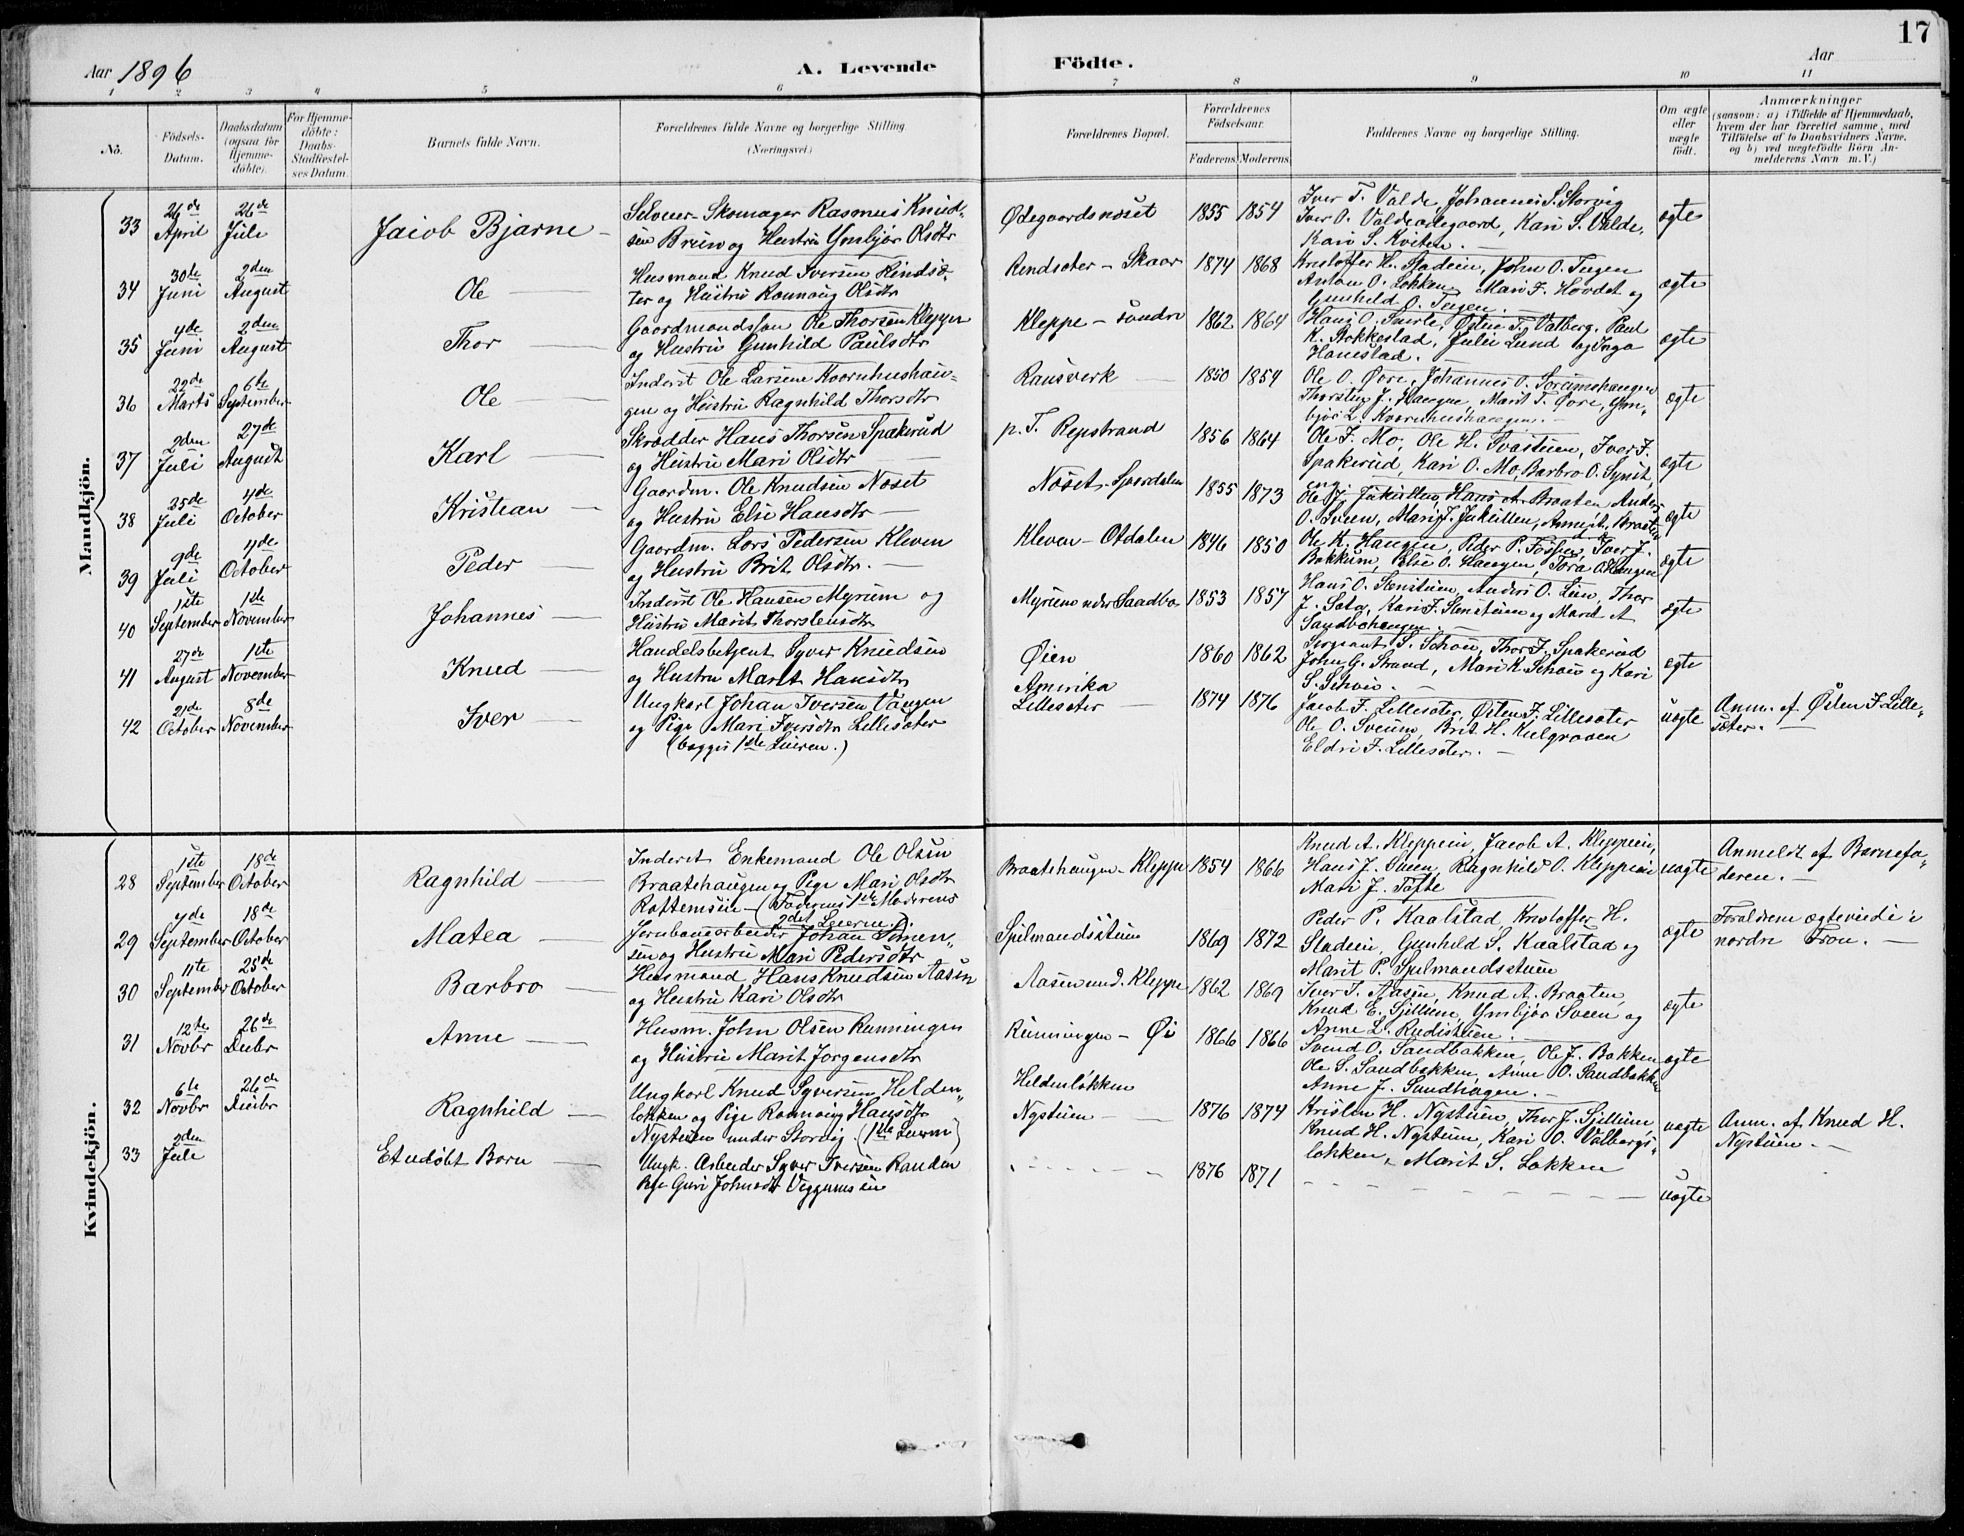 17
Aar 1896
A. Levende
Födte.
Aar
1 2 3 4 5 6 7 8 9 10 11
No.
Födsels-Datum.
Daabsdatum (ogsaa for Hjemmedöbte).
For Hjemmedöbte: Daabs-Stadfæstelses Datum.
Barnets fulde Navn.
Forældrenes fulde Navne og borgerlige Stilling (Næringsvei)
Forældrenes Bopæl.
Forældrenes Födselsaar.
Faderens. Moderens.
Faddernes Navne og borgerlige Stilling.
Om ægte eller uægte födt.
Anmærkninger
(saasom: a) i Tilfælde af Hjemmedaab, hvem der har forrettet samme, med Tilföielse af to Daabsvidners Navne, og b) ved uægtefödte Börn Anmelderens Navn m. V.)
Mandkjön.
33 26de April 26de Juli Jacob Bjarne Selveier Skomager Rasmus Knudsen Bruno og Hustru Ymbjør Olsdtr Ødegaardsnæset 1855 1854 Iver T. Valde, Johannes S. Storvig
Iver O. Valdeødegaard, Kari S. Valde,
Kari S. Kviten. ægte
34 30te Juni 2den August Ole Husmand Knud Iversen Rindsæter og Hustru Ronnaug Olsdtr Rendsæter - Skaar 1874 1868 Kristoffer H. Stadein, John O. Tugen
Anton O. Løkken, Mari F. Hovdet og
Gunhild O. Tugen. ægte
35 4de Juni 2den August Thor Gaardmandssøn Ole Thorsen Kleppe og Hustru Gunhild Paulsdtr Kleppe - søndre 1862 1864 Hans O. Snerle, Østen T. Valberg, Paul
K. Stokkestad, Julie Lund og Inga
Hanestad. ægte
36 22de Marts 6te September Ole Inderst Ole Larsen Kvornhushaugen og Hustru Ragnhild Thorsdtr Ransverk 1850 1854 Ole O. Øvre, Johannes O. Sørumshaugen
Thorstein J. Haugen, Marit T. Øvre, Ymbjør L. Kvornhushaugen. ægte
37 2den Juli 27de August Karl Skrædder Hans Thorsen Spakrud og Hustru Mari Olsdtr p. T. Repstrand 1856 1864 Ole J. Mo, Ole H. Svastuen, Iver F.
Spakerud, Kari O. Mo, Barbro O. Synsteng. ægte
38 25de Juli 4de October Kristian Gaardm. Ole Knudsen Næset og Hustru Else Hansdtr Næset - Sjoardalen 1855 1873 Ole J. Jukullen, Hans A. Braaten, Anders
O. Sveen, Mari J. Jukullen, Anne A. Braaten ægte
39 9de Juli 4de October Peder Gaardm. Lars Pedersen Kleven og Hustru Brit Olsdtr. Kleven - Otdalen 1846 1850 Ole K. Haugen, Peder P. Fosher, Iver J.
Bakkum, Else O. Haugen, Tora O. Haugen ægte
40 1ste September 1ste November Johannes Inderst Ole Hansen Myrum og Hustru Marit Thorstensdtr Myrum under Saadbo 1853 1857 Hans O. Stenstuen, Anders O. Lien, Thor
J. Sata, Kari F. Stenstuen og Marit A
Sandbohaugen. ægte
41 27de August 1ste November Knud Handelsbetjent Syver Knudsen og Hustru Marit Hansdtr Øien 1860 1862 Sergeant S. Schou, Thor F. Spakerud
John G. Strand, Mari K. Schou og Kari
S. Schou. ægte
42 21de October 8de November Iver Ungkarl Johan Iversen Vangen og Pige Mari Iversdtr Lillesæter (begges 1ste Leiren.) Amerika Lillesæter 1874 1876 Jacob F. Lillesæter, Østen F. Lillesæter
Ole O. Sveum, Brit H. Kulgraven
Eldri F. Lillesæter. uægte Anm. af Østen F. Lillesæter.
Kvindekjön.
28 1ste September 18de October Ragnhild Inderst Enkemand Ole Olsen Braatehaugen og Pige Mari Olsdtr Rottemsøien (Faderens 1ste Moderens 2det Leierm.) Braatehaugen - Kleppe 1854 1866 Knud A. Kleppeien, Jacob A. Kleppeien,
Hans J. Sveen, Ragnhild O. Kleppeien
Mati J. Tofte uægte Anmeldt af Barnefaderen.
29 4de September 18de October Matea Jernbanearbeider Johan Simensen og Hustru Mari Pedersdtr Spilmandsstuen 1869 1872 Peder P. Kaalstad, Kristoffer H.
Stadein, Gunhild S. Kaalstad og
Marit P. Spilmandsstuen ægte Forældrene ægteviede i nordre Fron.
30 11te September 25de October Barbro Husmand Hans Knudsen Aasen og Hustru Kari Olsdtr Aasen und. Kleppe 1862 1869 Iver T. Aasen, Knud A. Braaten,
Knud E. Sjellum, Ymbjør Sveen og
Anne L. Rudistuen. ægte
31 12te Novbr 26de Decbr Anne Husm. John Olsen Runningen og Hustru Marit Jørgensdtr Runningen - Øi 1866 1866 Svend O. Sandbakken, Ole J. Bakken
Ole S. Sandbakken, Anne O. Sandbakken
Anne J. Sandhaugen. ægte
32 6te Novbr 26de Decbr Ragnhild Ungkarl Knud Syversen Heldenløkken og Pige Ronnaug Hansdtr Nystuen under Storvig. (1ste Leierm) Heldenløkken Nystuen 1876 1874 Kristen H. Nystuen, Thor J. Sjellum,
Knud H. Nystuen, Kari O. Valbergsløkken, Marit S. Løkken uægte Anm. af Knud H. Nystuen.
33 2den Juli Et udøbt Barn Ungk. Arbeider Syver Iversen Randen Pige Guri Johnsdtr Veggumsøien 1876 1871 uægte